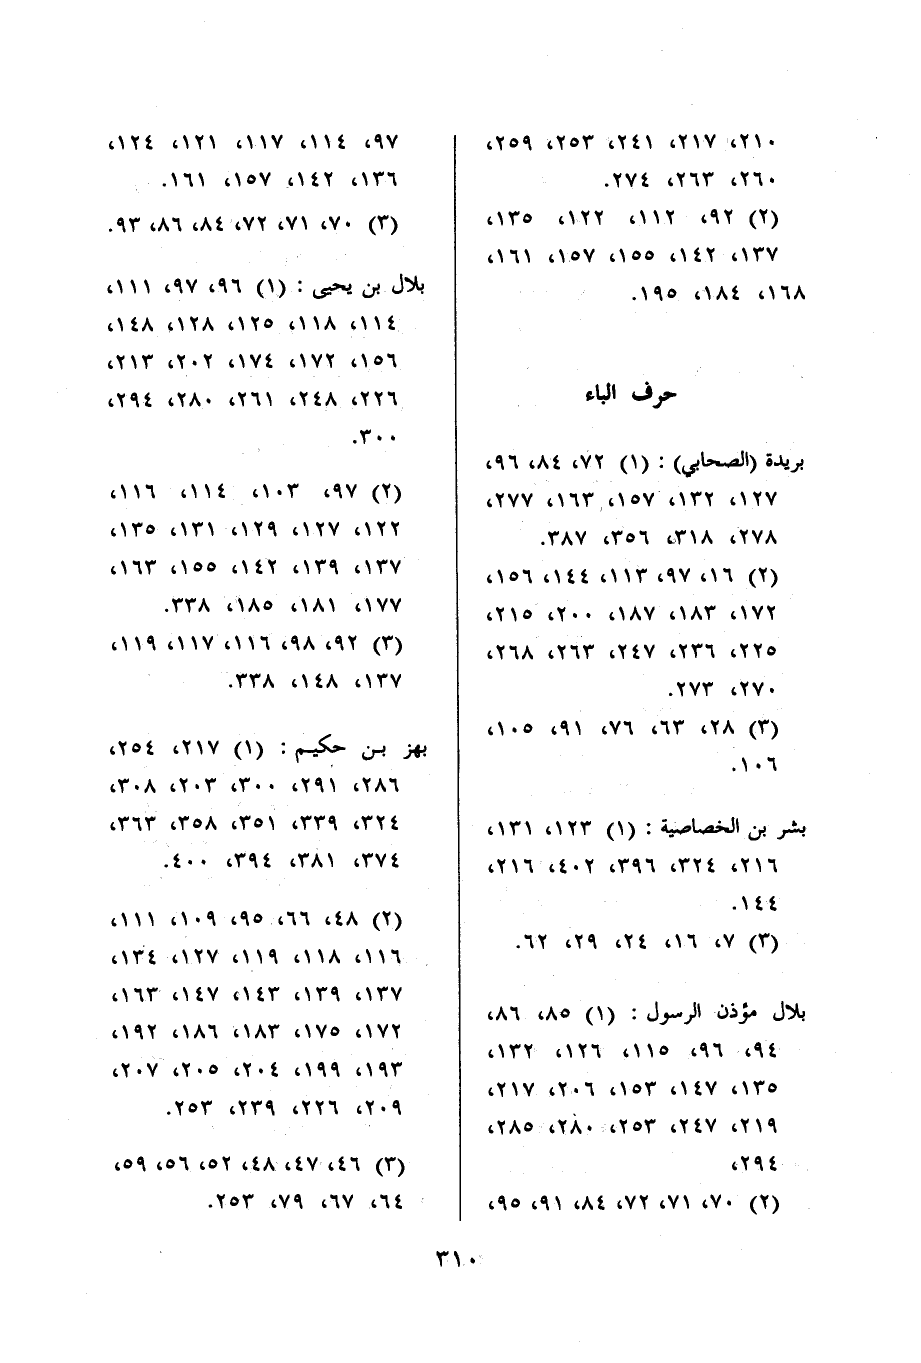 ٢١٠، ٢١٧، ٢٤١، ٢٥٣، ٢٥٩،
٢٦٠، ٢٦٣، ٢٧٤.
(٢) ٩٢، ١١٢، ١٢٢، ١٣٥،
١٣٧، ١٤٢، ١٥٥، ١٥٧، ١٦١،
١٦٨، ١٨٤، ١٩٥.
حرف الباء
بريدة (الصحابي) : (١) ٧٢، ٨٤، ٩٦،
١٢٧، ١٣٢، ١٥٧، ١٦٣، ٢٧٧،
٢٧٨، ٣١٨، ٣٥٦، ٣٨٧.
(٢) ١٦، ٩٧، ١١٣، ١٤٤، ١٥٦،
١٧٢، ١٨٣، ١٨٧، ٢٠٠، ٢١٥،
٢٢٥، ٢٣٦، ٢٤٧، ٢٦٣، ٢٦٨،
٢٧٠، ٢٧٣.
(٣) ٢٨، ٦٣، ٧٦، ٩١، ١٠٥،
١٠٦.
بشر بن الخصاصية : (١) ١٢٣، ١٣١،
٢١٦، ٣٢٤، ٣٩٦، ٤٠٢، ٢١٦،
١٤٤.
(٣) ٧، ١٦، ٢٤، ٢٩، ٦٢.
بلال مؤذن الرسول : (١) ٨٥، ٨٦،
٩٤، ٩٦، ١١٥، ١٢٦، ١٣٢،
١٣٥، ١٤٧، ١٥٣، ٢٠٦، ٢١٧،
٢١٩، ٢٤٧، ٢٥٣، ٢٨٠، ٢٨٥،
٢٩٤،
(٢) ٧٠، ٧١، ٧٢، ٨٤، ٩١، ٩٥،
٩٧، ١١٤، ١١٧، ١٢١، ١٢٤،
١٣٦، ١٤٢، ١٥٧، ١٦١.
(٣) ٧٠، ٧١، ٧٢، ٨٤، ٨٦، ٩٣.
بلال بن يحيى : (١) ٩٦، ٩٧، ١١١،
١١٤، ١١٨، ١٢٥، ١٢٨، ١٤٨،
١٥٦، ١٧٢، ١٧٤، ٢٠٢، ٢١٣،
٢٢٦، ٢٤٨، ٢٦١، ٢٨٠، ٢٩٤،
٣٠٠.
(٢) ٩٧، ١٠٣، ١١٤، ١١٦،
١٢٢، ١٢٧، ١٢٩، ١٣١، ١٣٥،
١٣٧، ١٣٩، ١٤٢، ١٥٥، ١٦٣،
١٧٧، ١٨١، ١٨٥، ٣٣٨.
(٣) ٩٢، ٩٨، ١١٦، ١١٧، ١١٩،
١٣٧، ١٤٨، ٣٣٨.
بهز بن حكيم : (١) ٢١٧، ٢٥٤،
٢٨٦، ٢٩١، ٣٠٠، ٢٠٣، ٣٠٨،
٣٢٤، ٣٣٩، ٣٥١، ٣٥٨، ٣٦٣،
٣٧٤، ٣٨١، ٣٩٤، ٤٠٠.
(٢) ٤٨، ٦٦، ٩٥، ١٠٩، ١١١،
١١٦، ١١٨، ١١٩، ١٢٧، ١٣٤،
١٣٧، ١٣٩، ١٤٣، ١٤٧، ١٦٣،
١٧٢، ١٧٥، ١٨٣، ١٨٦، ١٩٢،
١٩٣، ١٩٩، ٢٠٤، ٢٠٥، ٢٠٧،
٢٠٩، ٢٢٦، ٢٣٩، ٢٥٣.
(٣) ٤٦، ٤٧، ٤٨، ٥٢، ٥٦، ٥٩،
٦٤، ٦٧، ٧٩، ٢٥٣.
٣١٠